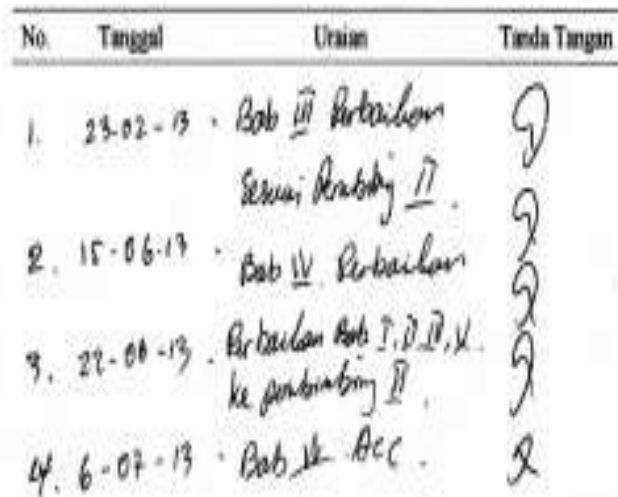 No. Tanggal Uraian Tanda Tangan
1. 23-02-13 - Bab III Perbaikan
Sesuai Pembimbing II.
2. 15-06-13 - Bab IV Perbaikan
3. 22-06-13 - Perbaikan Bab I, II, IV, V
ke pembimbing II.
4. 6-07-13 - Bab Acc.